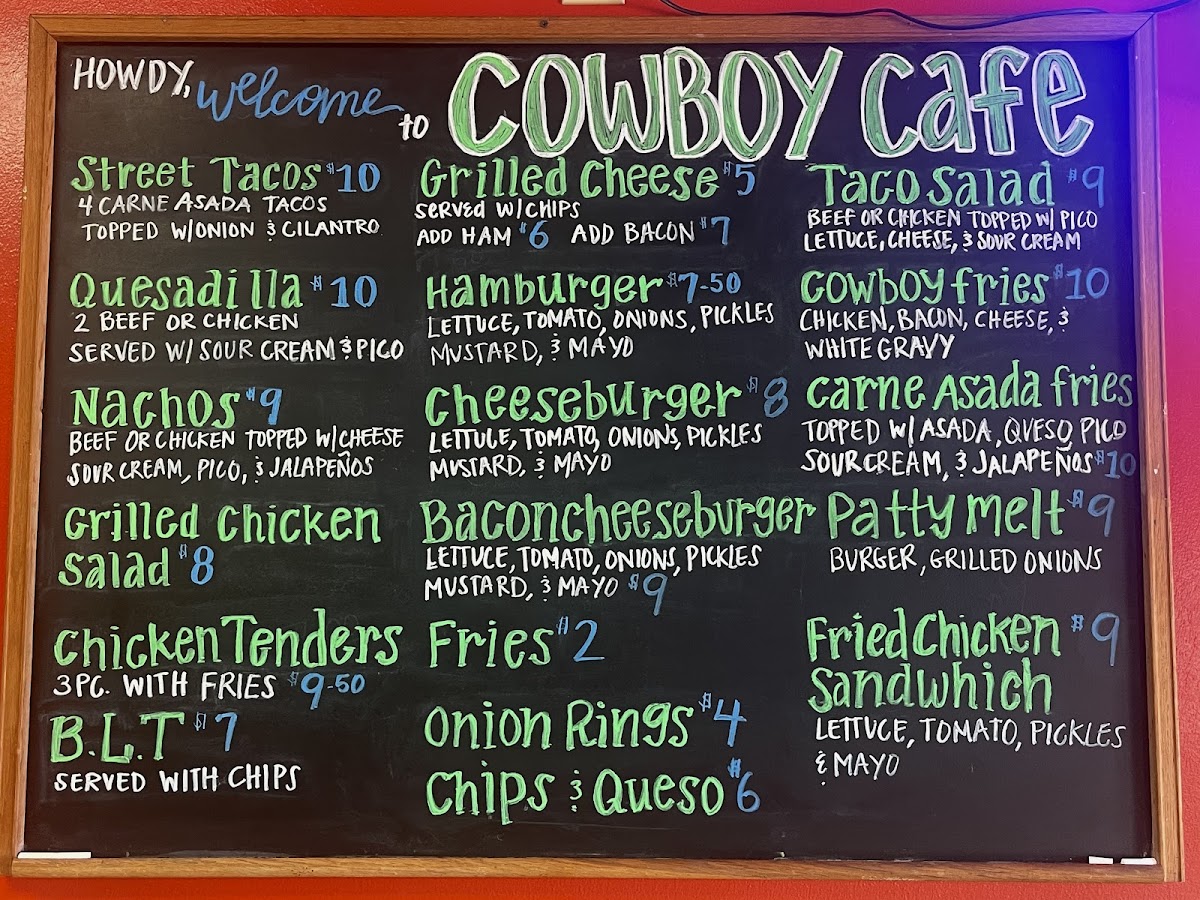 HOWDY, welcome to COWBOY Cafe
Street Tacos $10
4 CARNE ASADA TACOS
TOPPED W/ONION & CILANTRO
Quesadilla $10
2 BEEF OR CHICKEN
SERVED W/ SOUR CREAM & PICO
Nachos $9
BEEF OR CHICKEN TOPPED W/CHEESE
SOUR CREAM, PICO, & JALAPEÑOS
Grilled Chicken
Salad $8
Chicken Tenders
3PC. WITH FRIES $9-50
B.L.T $7
SERVED WITH CHIPS
Grilled Cheese $5
SERVED W/CHIPS
ADD HAM $6 ADD BACON $7
Hamburger $7-50
LETTUCE, TOMATO, ONIONS, PICKLES
MUSTARD, & MAYO
Cheeseburger $8
LETTUCE, TOMATO, ONIONS, PICKLES
MUSTARD, & MAYO
Baconcheeseburger
LETTUCE, TOMATO, ONIONS, PICKLES
MUSTARD, & MAYO $9
Fries $2
Onion Rings $4
Chips & Queso $6
Taco Salad $9
BEEF OR CHICKEN TOPPED W/ PICO
LETTUCE, CHEESE, & SOUR CREAM
Cowboy fries $10
CHICKEN, BACON, CHEESE, &
WHITE GRAVY
Carne Asada fries
TOPPED W/ ASADA, QUESO, PICO
SOUR CREAM, & JALAPEÑOS $10
Patty Melt $9
BURGER, GRILLED ONIONS
Fried Chicken $9
Sandwhich
LETTUCE, TOMATO, PICKLES
& MAYO